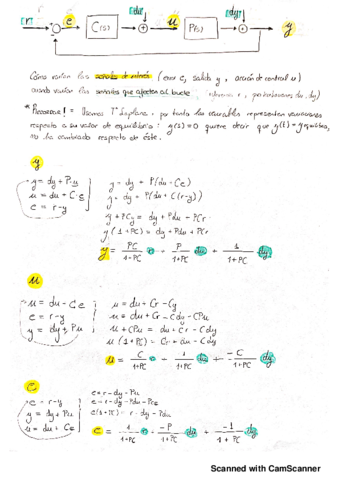 [r] e [du] u [dy] y
C(s) P(s)
Cómo varían las señales de interés (error e, salida y, acción de control u)
cuando varían las señales que afectan al bucle referencia r, perturbaciones du, dy)
* RECORDAR! = Usamos T^a Laplace, por tanto las variables representan variaciones
respecto a su valor de equilibrio: y(s)=0 quiere decir que y(t)=y equilibrio,
no ha cambiado respecto de éste.
y
y = dy + P·u
u = du + C e
e = r-y
y = dy + P(du + Ce)
y = dy + P(du + C(r-y))
y + PCy = dy + Pdu + PCr
y (1+PC) = dy + Pdu + PCr
y = PC/1+PC r + P/1+PC du + 1/1+PC dy
u
u = du + Ce
e = r-y
y = dy + Pu
u = du + Cr - Cy
u = du + Cr - Cdy - CPu
u + CPu = du + Cr - Cdy
u (1+PC) = Cr + du - Cdy
u = C/1+PC r + 1/1+PC du + -C/1+PC dy
e
e = r-y
y = dy + Pu
u = du + Ce
e = r - dy - Pu
e = r - dy - Pdu - PCe
e(1+PC) = r - dy - Pdu
e = 1/1+PC r + -P/1+PC du + -1/1+PC dy
Scanned with CamScanner